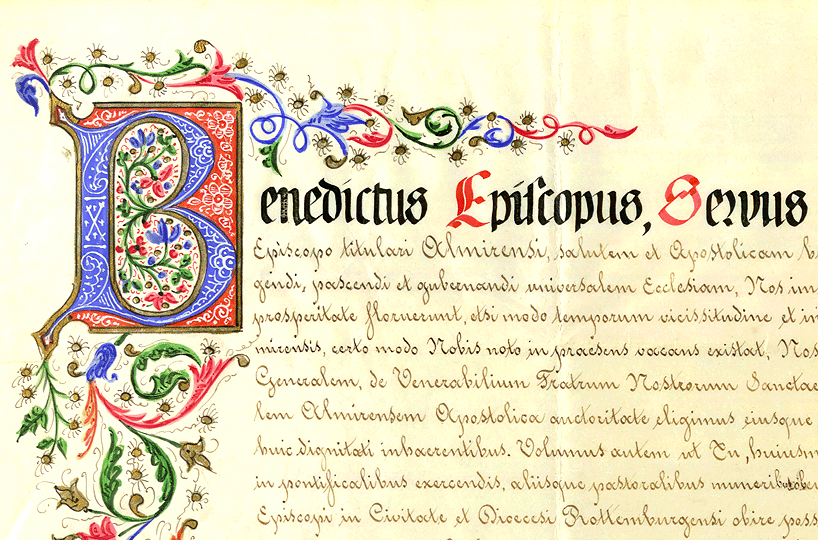 Benedictus Episcopus, Servus
Episcopo titulari Almirensi, salutem et Apostolicam
gendi, pascendi et gubernandi universalem Ecclesiam, Nos im
prosperitate floruerunt, etsi modo temporum vicissitudine et in
mirensis, certo modo Nobis noto in praesens vacans existat, Nos
Generalem, de Venerabilium Fratrum Nostrorum Sanctae
lem Almirensem Apostolica auctoritate eligimus eiusque
huic dignitati inhaerentibus. Volumus autem ut Tu, huiusm
in pontificalibus exercendis, aliisque pastoralibus muneribus
Episcopi in Civitate et Dioecesi Rottemburgensi obire poss